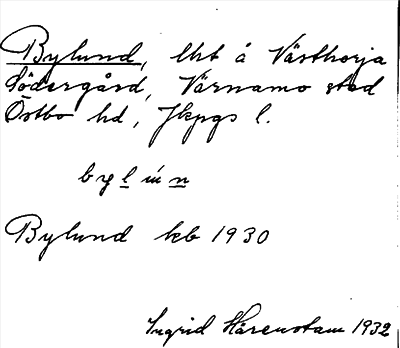 Bylund, lht å Västhorja
Södergård, Värnamo stad
Östbo hd, Jkpgs l.
bylún
Bylund kb 1930
Ingrid Hårenstam 1932